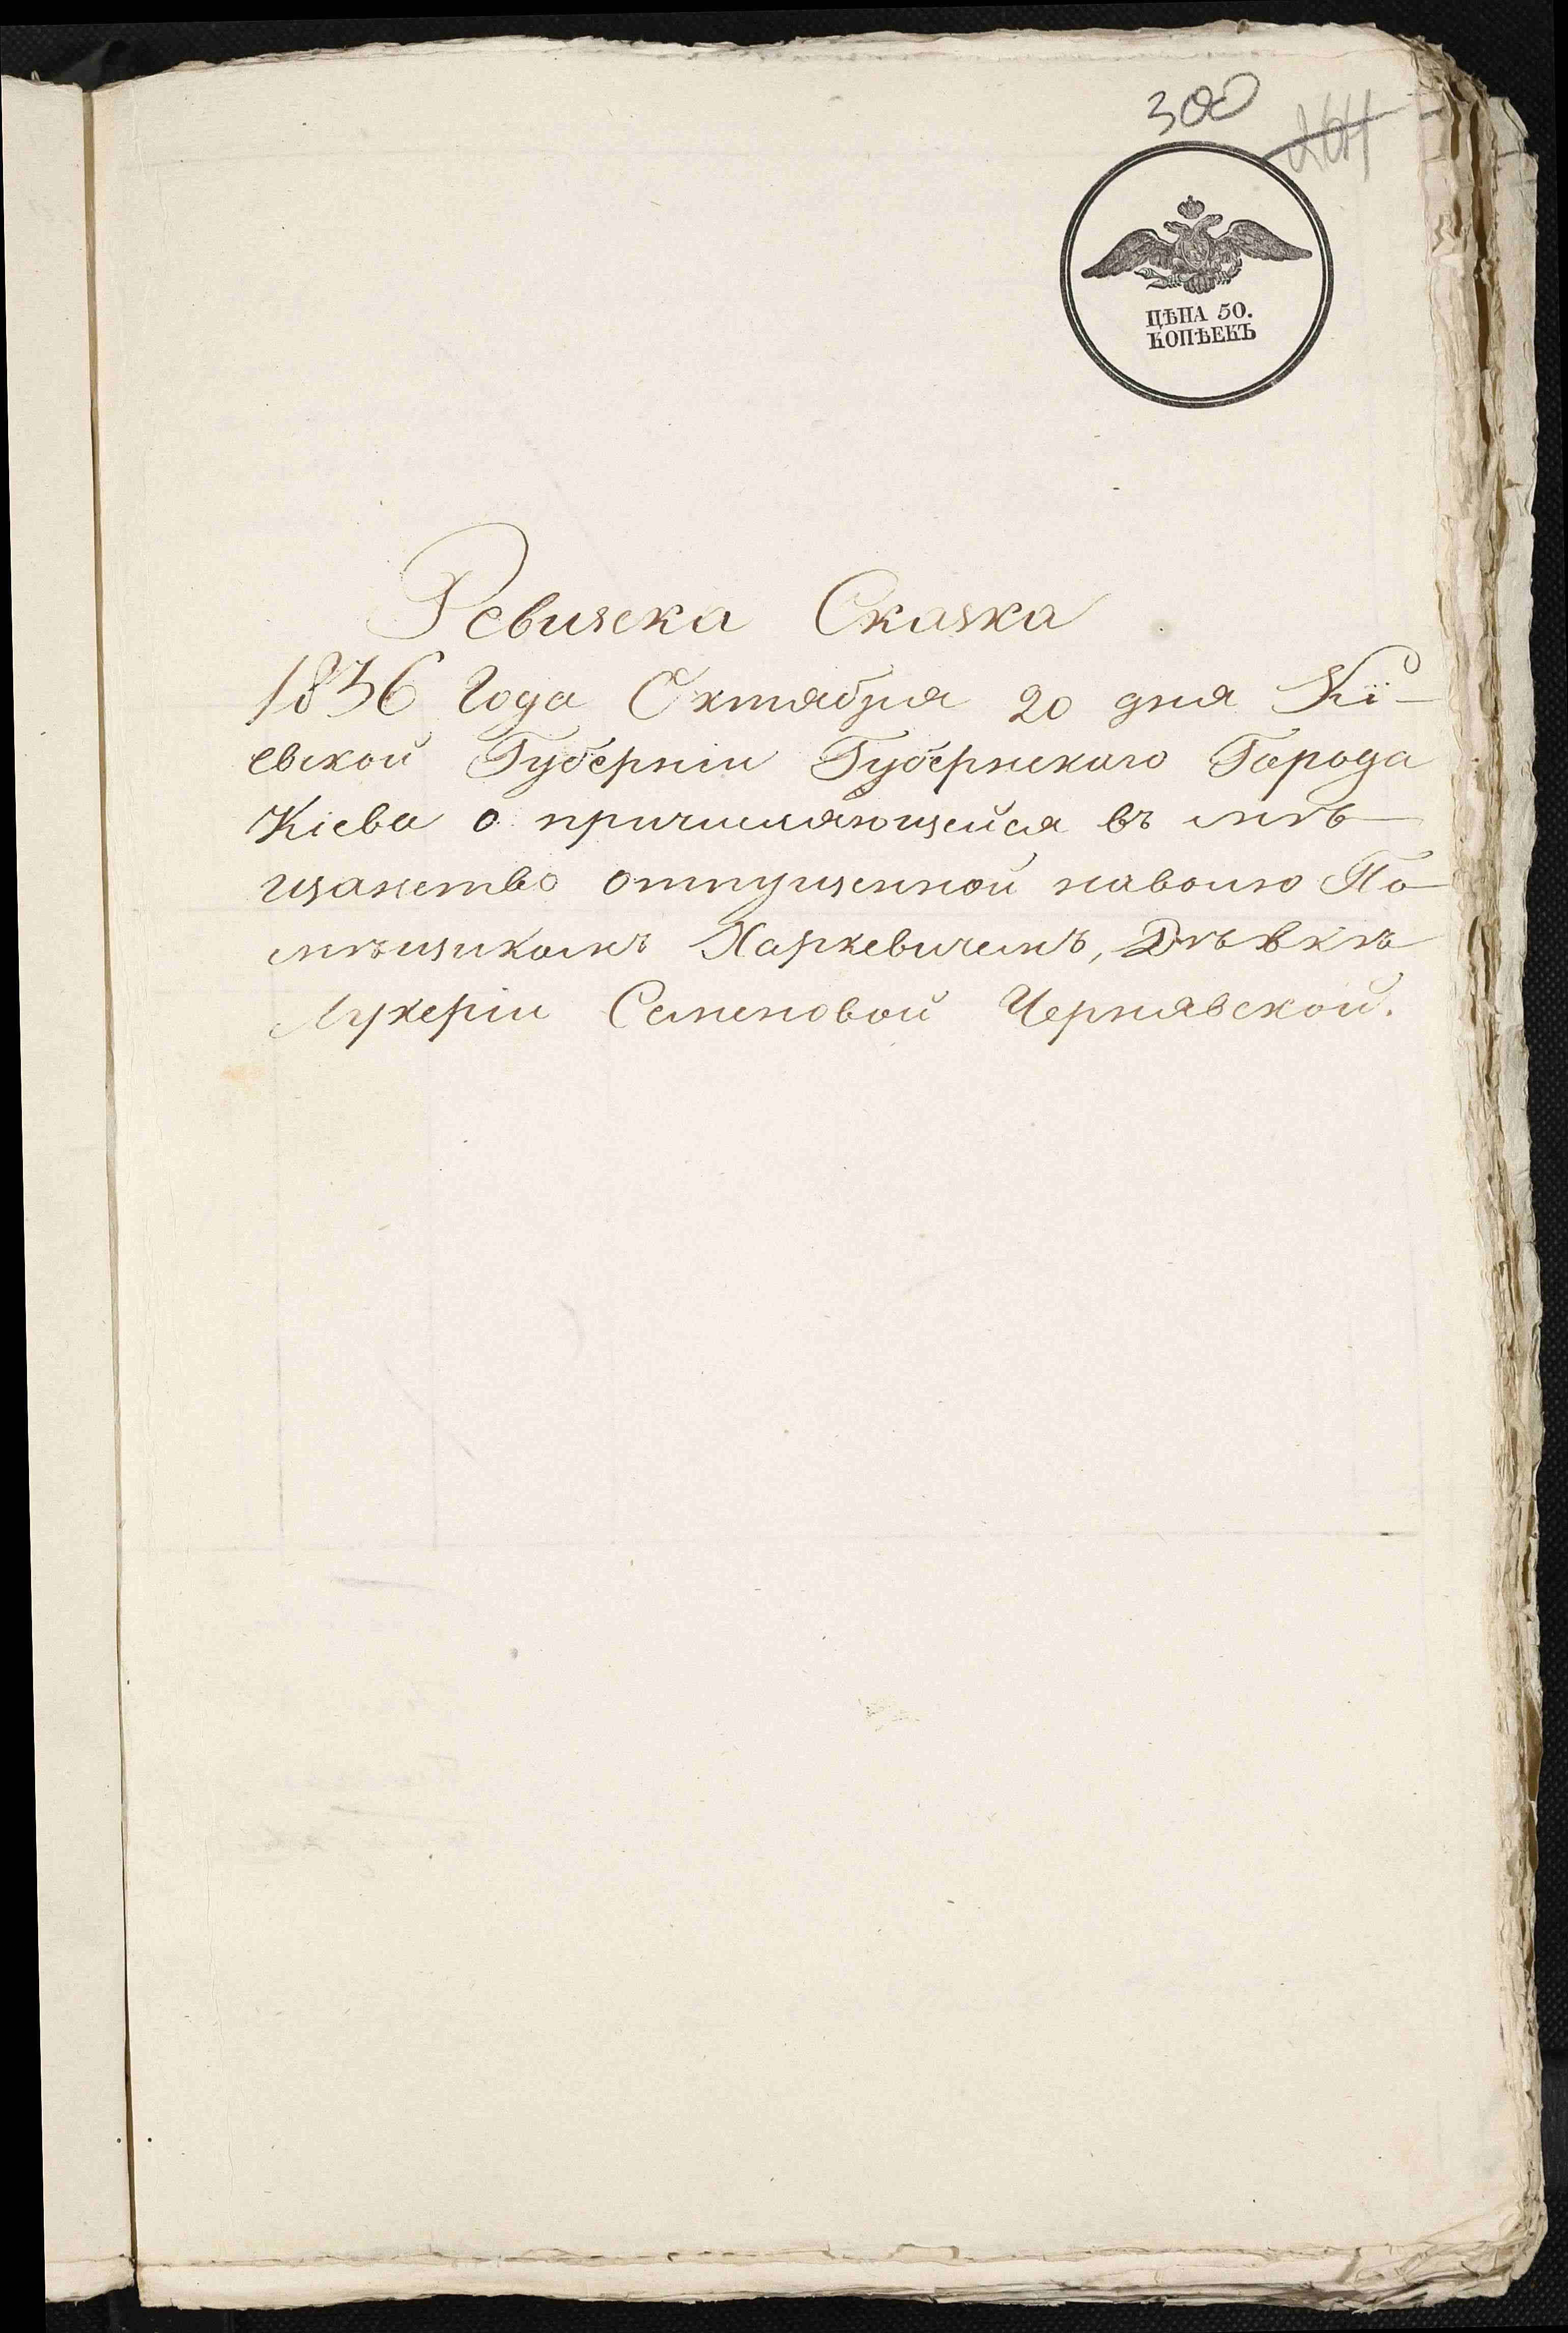 300
264
ЦѢНА 50.
КОПѢЕКЪ
Ревизска Сказка
1836 Года Октября 20 дня Кі-
евской Губерніи Губернскаго Города
Кіева о причисляющейся въ мѣ-
щанство отпущенной наволю По-
мѣщикомъ Харкевичемъ, Дѣвкѣ
Лукеріи Семеновой Чернявской.